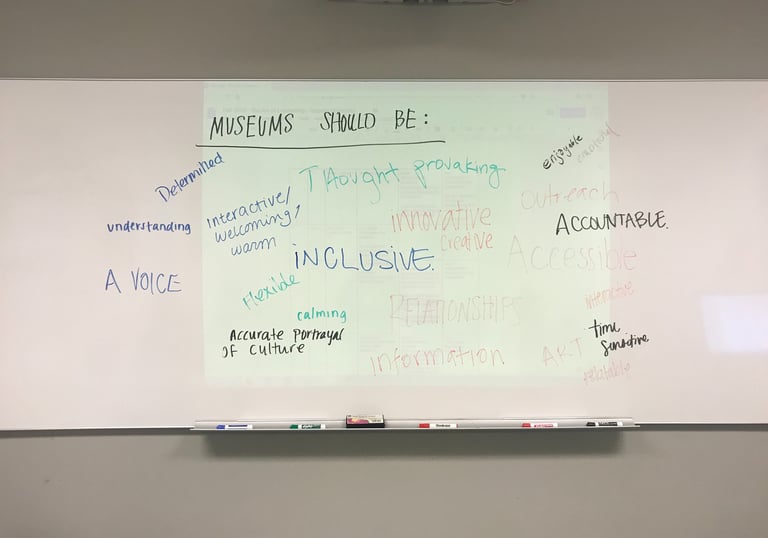 MUSEUMS SHOULD BE:
Determined
Thought provaking
enjoyable
understanding
Interactive/
welcoming/
warm
innovative
creative
Outreach
ACCOUNTABLE.
iNCLUSIVE.
Accessible
A VOICE
Flexible
calming
RELATIONSHIPS
interactive
Accurate Portrayal
OF Culture
information
ART
time
sensitive
relatable